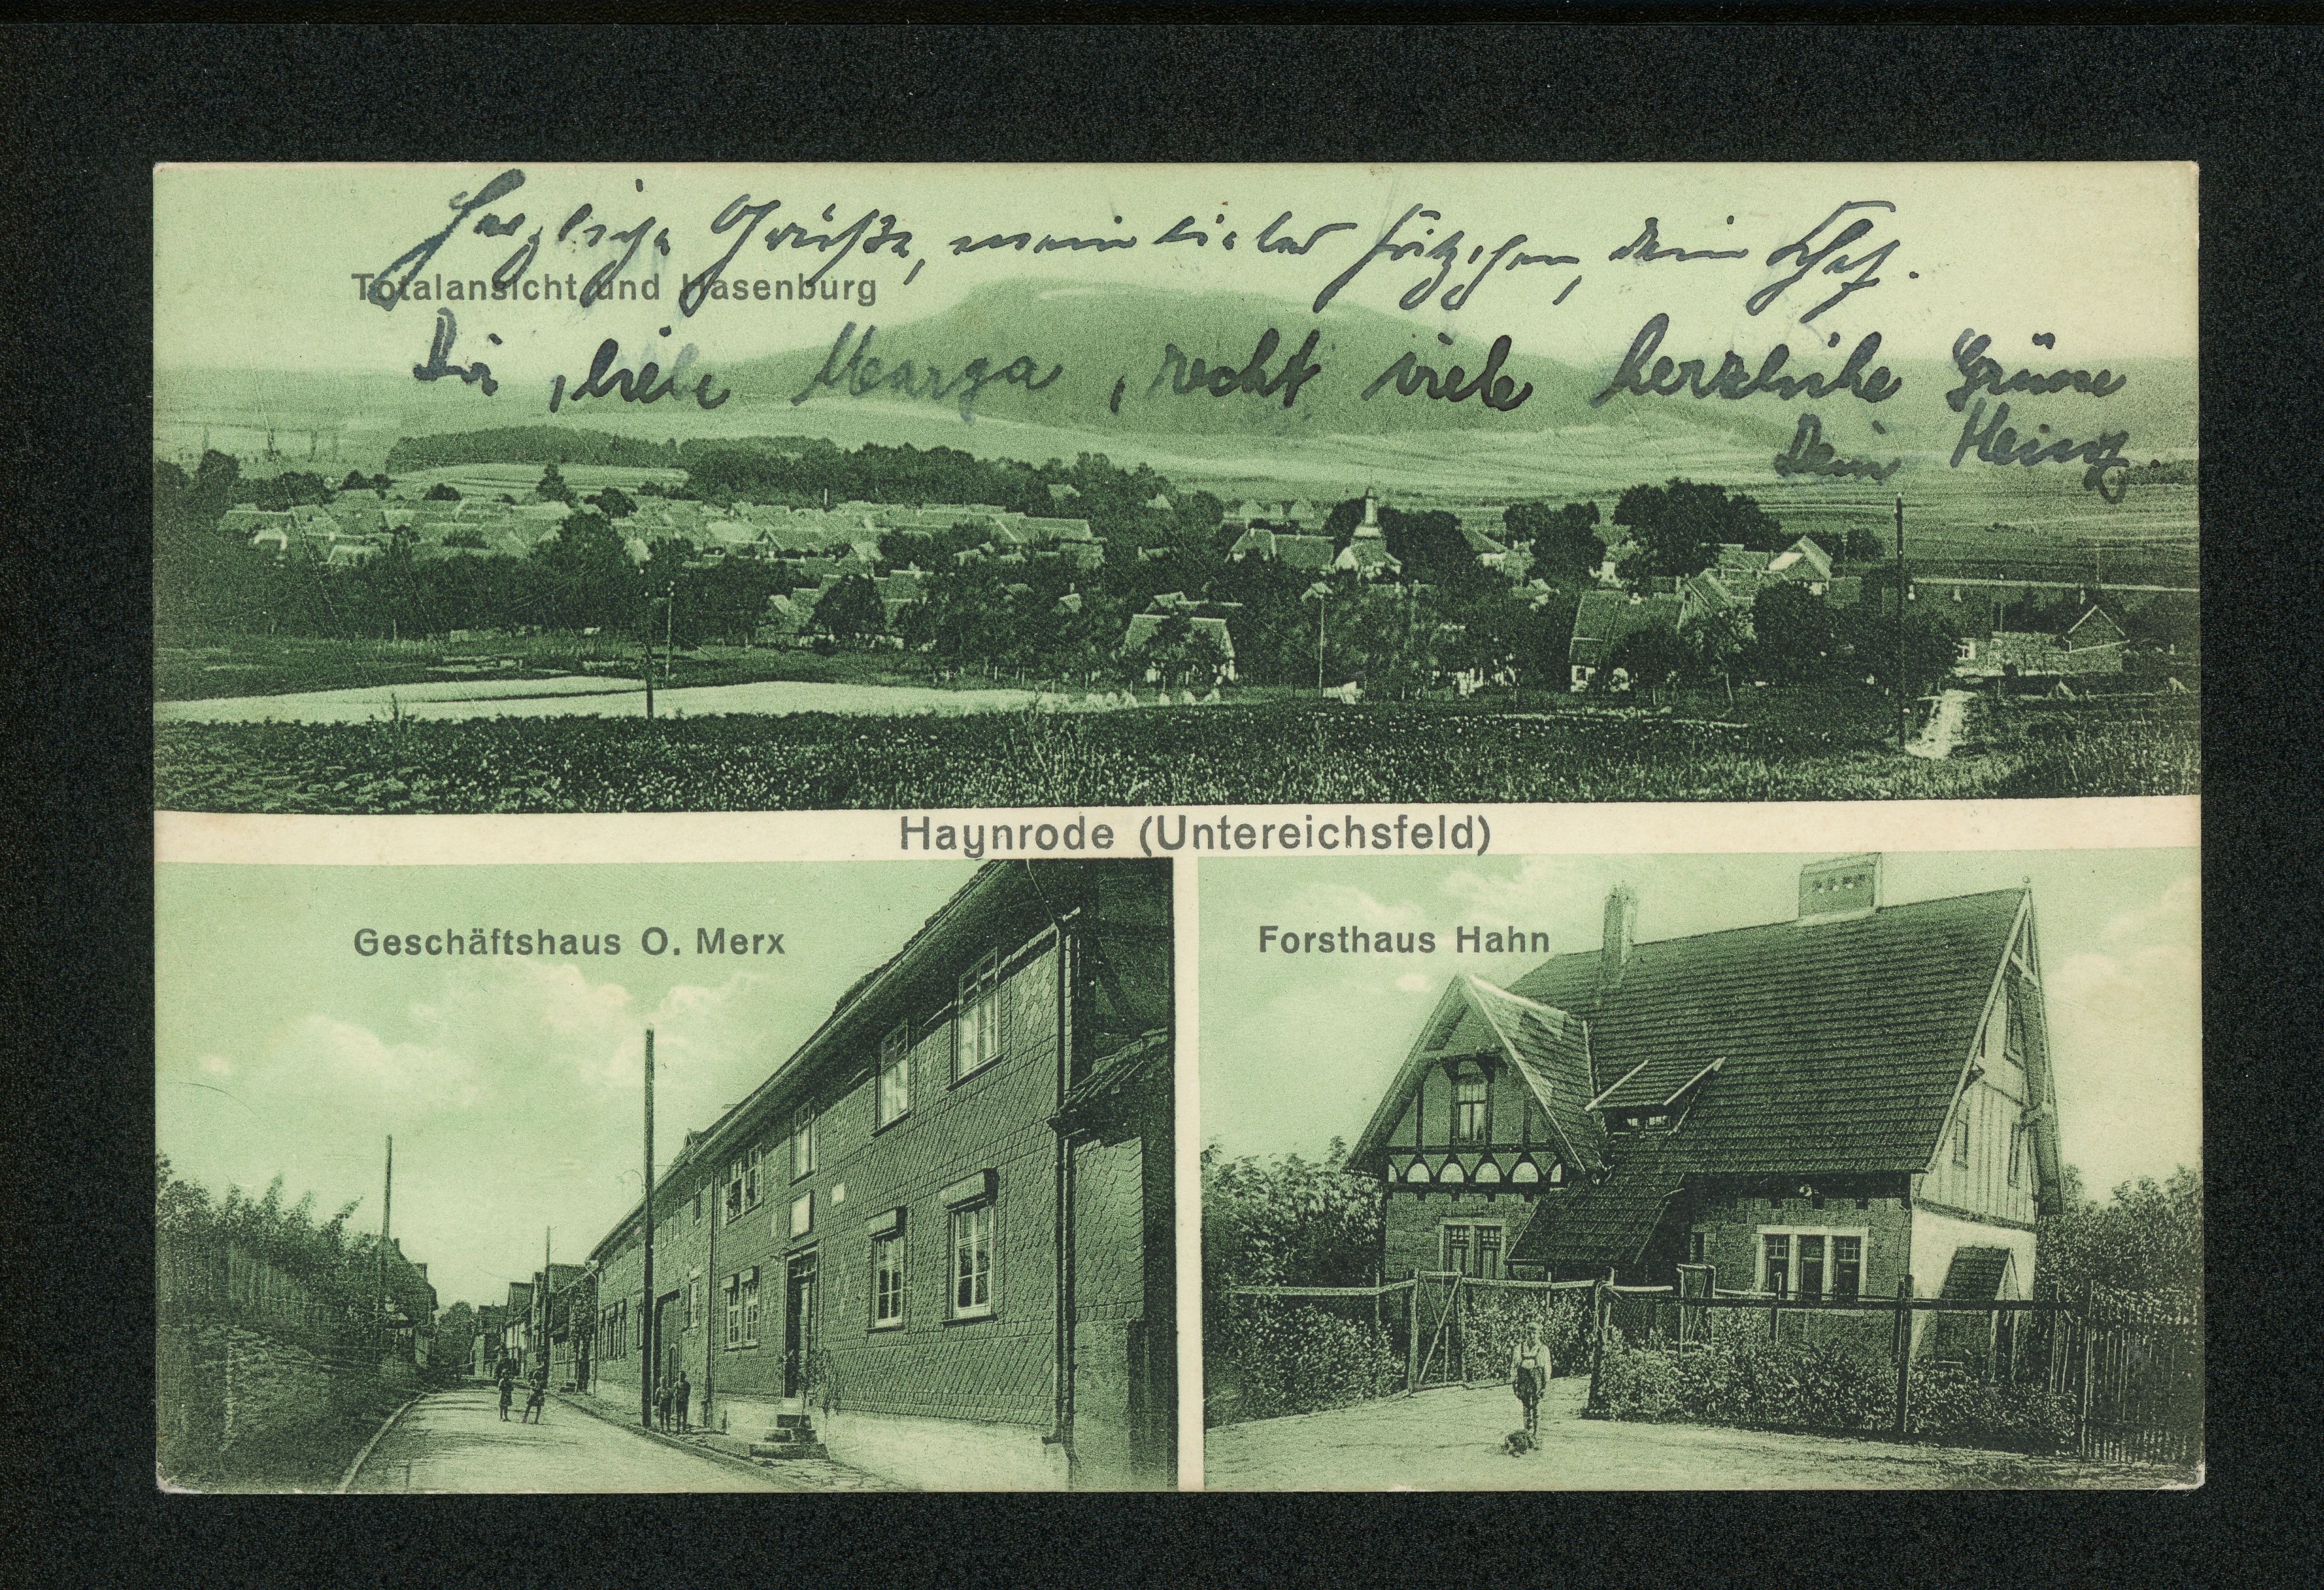 Herzliche Grüße, mein liebes dein Schaf.
Totalansicht und Hasenburg
Dir, liebe Marga, recht viele herzliche Grüsse
Dein Heinz.
Haynrode (Untereichsfeld)
Geschäftshaus O. Merx
Forsthaus Hahn